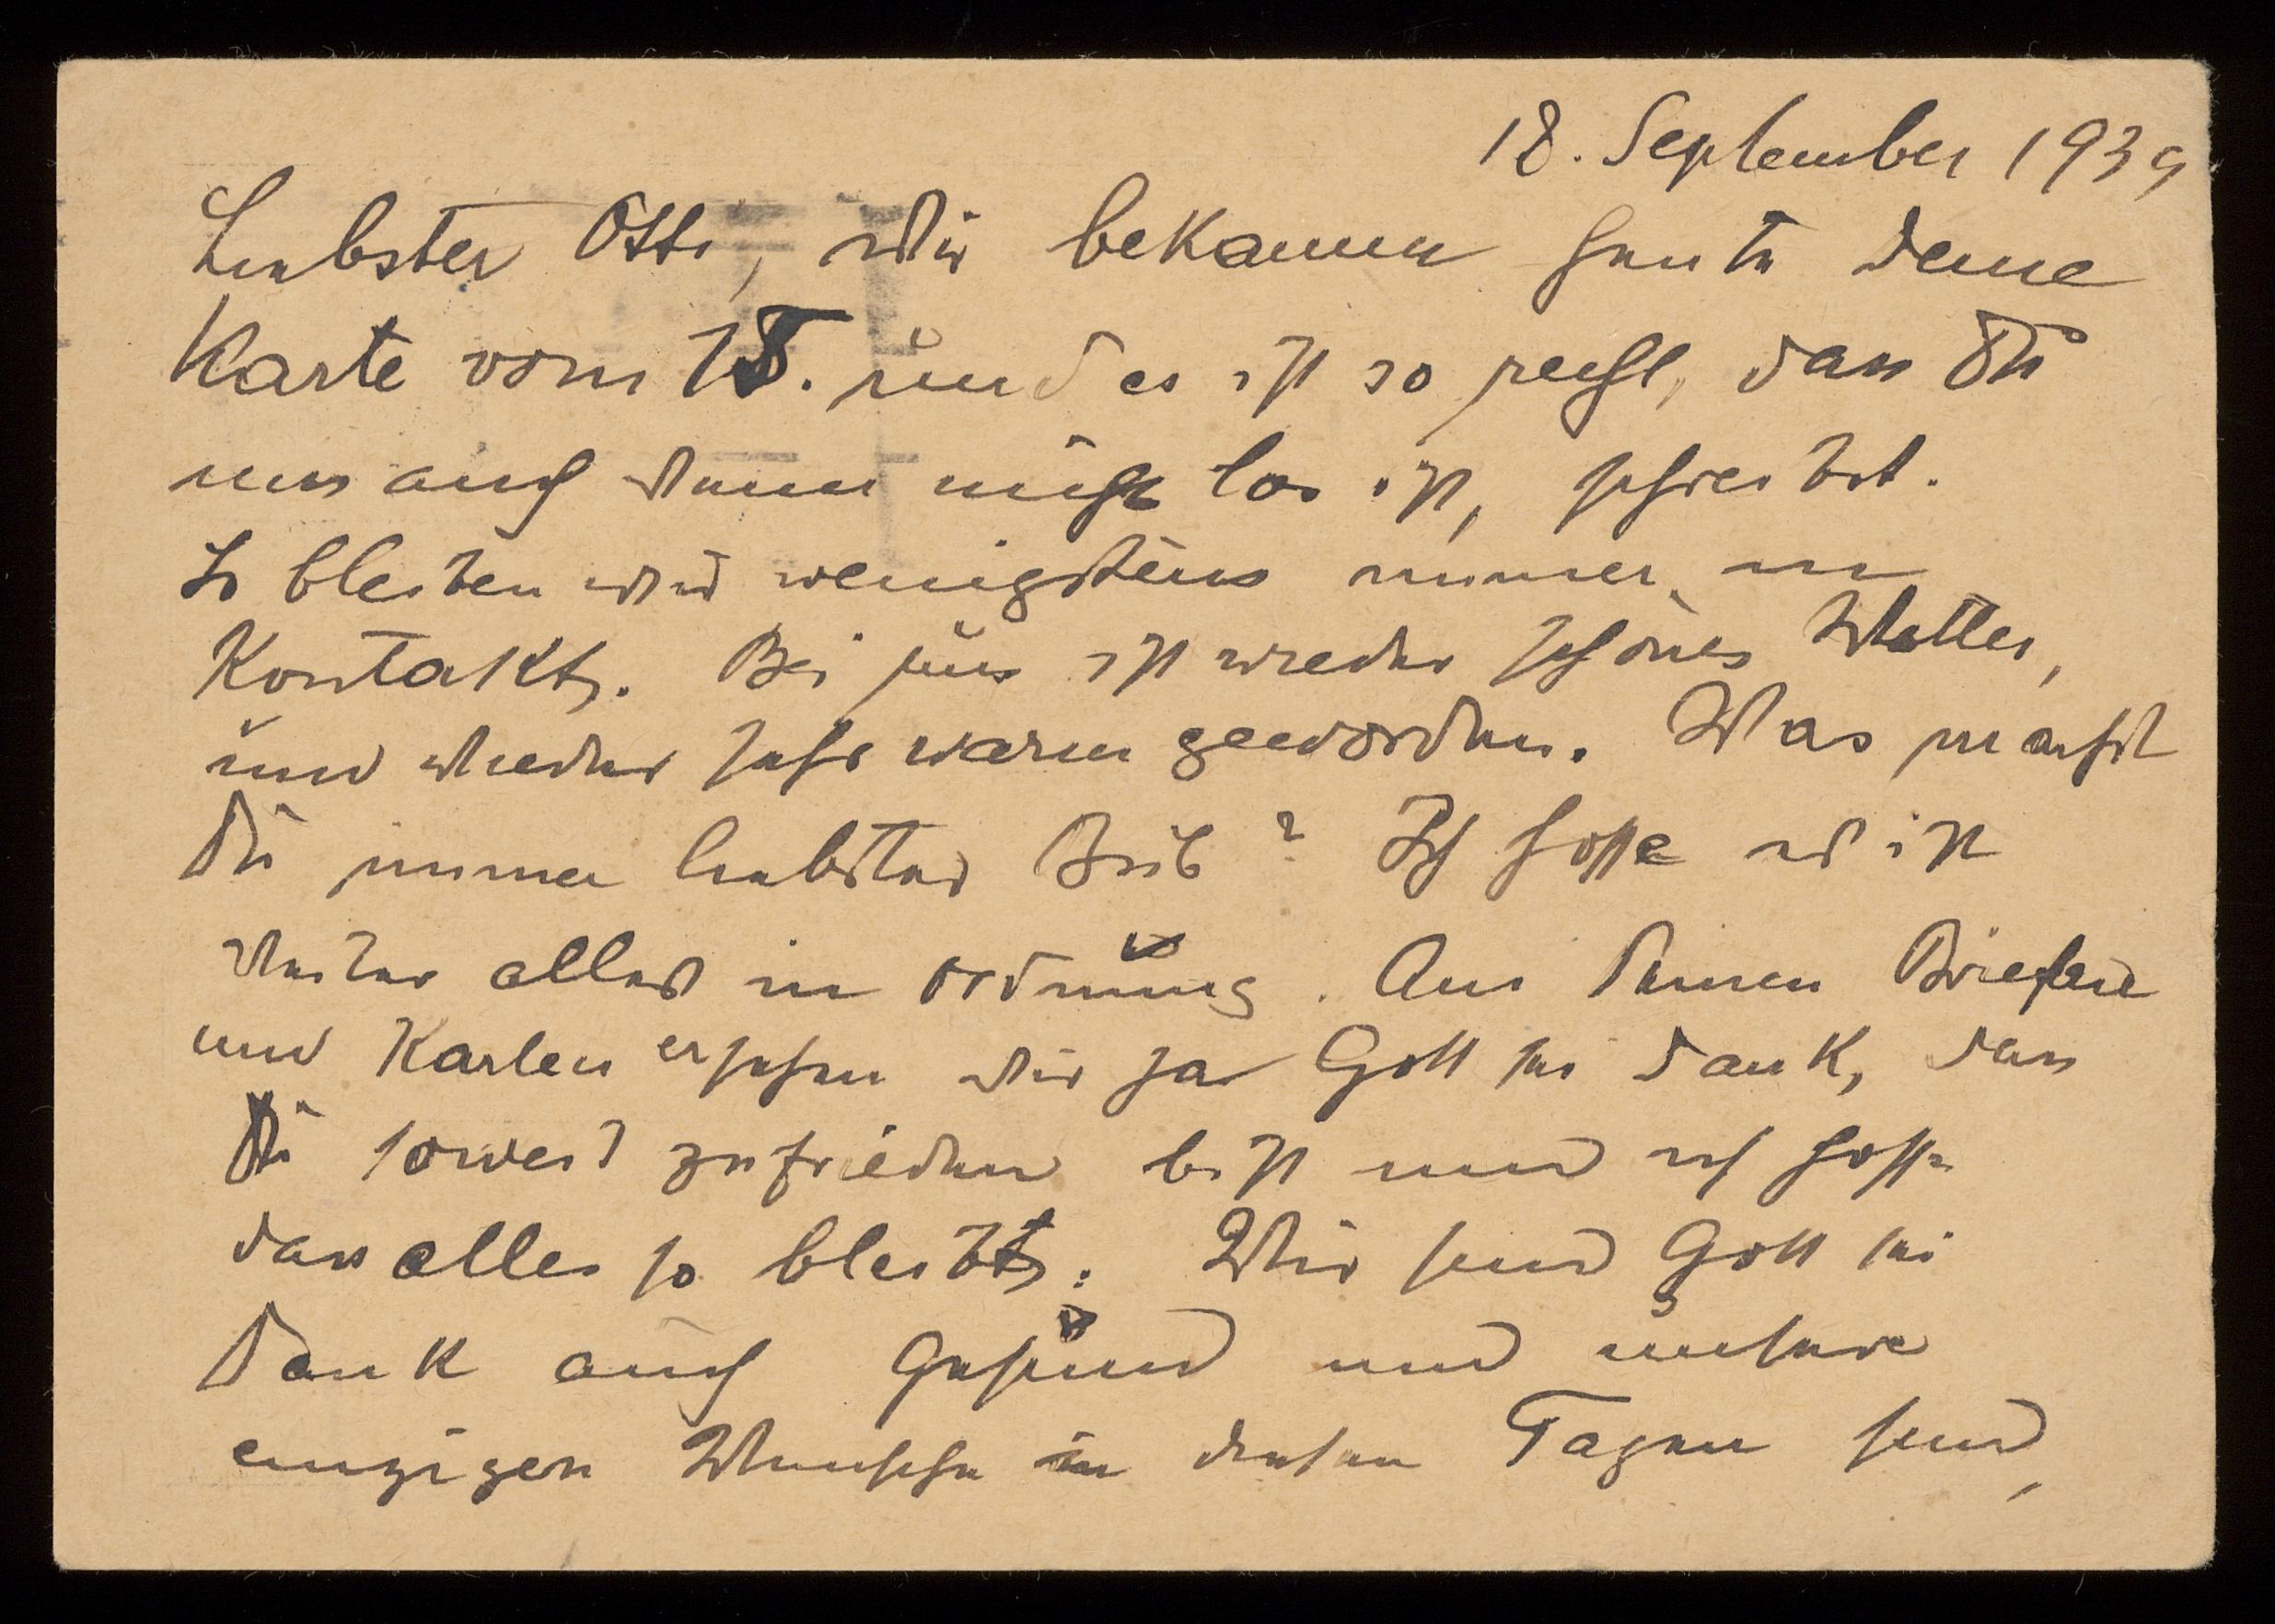 18. September 1939
Liebster Otto, Wir bekamen heute Deine
Karte vom 15. und es ist so recht, dass Du
uns auch wenn nichts los ist, schreibst.
So bleiben wir wenigstens immer in
Kontakt. Bei uns ist wieder schönes Wetter,
und wieder sehr warm geworden. Was machst
Du immer liebster Bub? Ich hoffe es ist
weiter alles in Ordnung. Aus Deinen Briefen
und Karten ersehen wir ja Gott sei Dank, dass
Du soweit zufrieden bist und ich hoffe
dass alles so bleibt. Wir sind Gott sei
Dank auch Gesund und unsere
einzigen Wünsche in diesen Tagen sind,